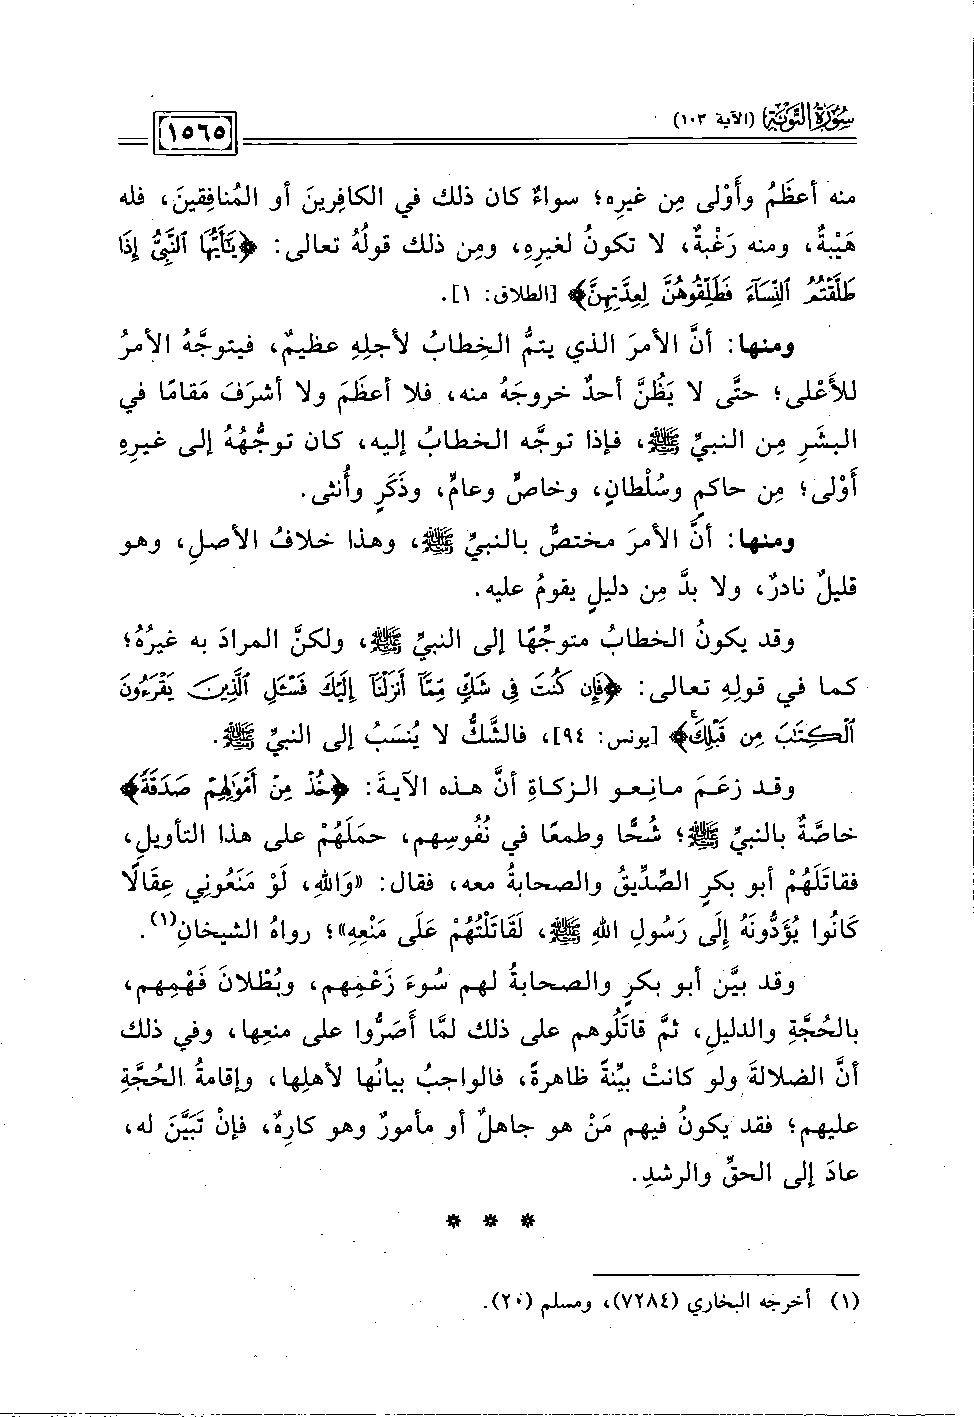 سُورَةُ التَّوْبَةِ (الآية ١٠٣)
١٥٦٥
منه أعظَمُ وأَوْلى مِن غيرِه؛ سواءٌ كان ذلك في الكافِرِينَ أو المُنافِقينَ، فله
هَيْبةٌ، ومنه رَغْبةٌ، لا تكونُ لغيرِهِ، ومِن ذلك قولُهُ تعالى: ﴿يَٰٓأَيُّهَا ٱلنَّبِيُّ إِذَا
طَلَّقْتُمُ ٱلنِّسَآءَ فَطَلِّقُوهُنَّ لِعِدَّتِهِنَّ﴾ [الطلاق: ١].
ومنها: أنَّ الأمرَ الذي يتمُّ الخِطابُ لأجلِهِ عظيمٌ، فيتوجَّهُ الأمرُ
للأَعْلى؛ حتَّى لا يَظُنَّ أحدٌ خروجَهُ منه، فلا أعظَمَ ولا أشرَفَ مَقامًا في
البشَرِ مِن النبيِّ ﷺ، فإذا توجَّه الخطابُ إليه، كان توجُّهُهُ إلى غيرِهِ
أَوْلى؛ مِن حاكمٍ وسُلْطانٍ، وخاصٍّ وعامٍّ، وذَكَرٍ وأُنثى.
ومنها: أنَّ الأمرَ مختصٌّ بالنبيِّ ﷺ، وهذا خلافُ الأصلِ، وهو
قليلٌ نادرٌ، ولا بدَّ مِن دليلٍ يقومُ عليه.
وقد يكونُ الخطابُ متوجِّهًا إلى النبيِّ ﷺ، ولكنَّ المرادَ به غيرُهُ؛
كما في قولِهِ تعالى: ﴿فَإِن كُنتَ فِى شَكٍّ مِّمَّآ أَنزَلْنَآ إِلَيْكَ فَسْـَٔلِ ٱلَّذِينَ يَقْرَءُونَ
ٱلْكِتَٰبَ مِن قَبْلِكَ ۚ﴾ [يونس: ٩٤]، فالشَّكُّ لا يُنسَبُ إلى النبيِّ ﷺ.
وقد زعَمَ مانِعو الزكاةِ أنَّ هذه الآيةَ: ﴿خُذْ مِنْ أَمْوَٰلِهِمْ صَدَقَةً﴾
خاصَّةٌ بالنبيِّ ﷺ؛ شُحًّا وطمعًا في نُفُوسِهم، حمَلَهُمْ على هذا التأويلِ،
فقاتَلَهُمْ أبو بكرٍ الصِّدِّيقُ والصحابةُ معه، فقال: «وَاللهِ، لَوْ مَنَعُونِي عِقَالًا
كَانُوا يُؤَدُّونَهُ إِلَى رَسُولِ اللهِ ﷺ، لَقَاتَلْتُهُمْ عَلَى مَنْعِهِ»؛ رواهُ الشيخانِ(١).
وقد بيَّن أبو بكرٍ والصحابةُ لهم سُوءَ زَعْمِهم، وبُطْلانَ فَهْمِهم،
بالحُجَّةِ والدليلِ، ثمَّ قاتَلُوهم على ذلك لمَّا أَصَرُّوا على منعِها، وفي ذلك
أنَّ الضلالةَ ولو كانتْ بيِّنةً ظاهرةً، فالواجبُ بيانُها لأهلِها، وإقامةُ الحُجَّةِ
عليهم؛ فقد يكونُ فيهم مَنْ هو جاهلٌ أو مأمورٌ وهو كارِهٌ، فإنْ تَبَيَّنَ له،
عادَ إلى الحقِّ والرشدِ.
* * *
(١) أخرجه البخاري (٧٢٨٤)، ومسلم (٢٠).